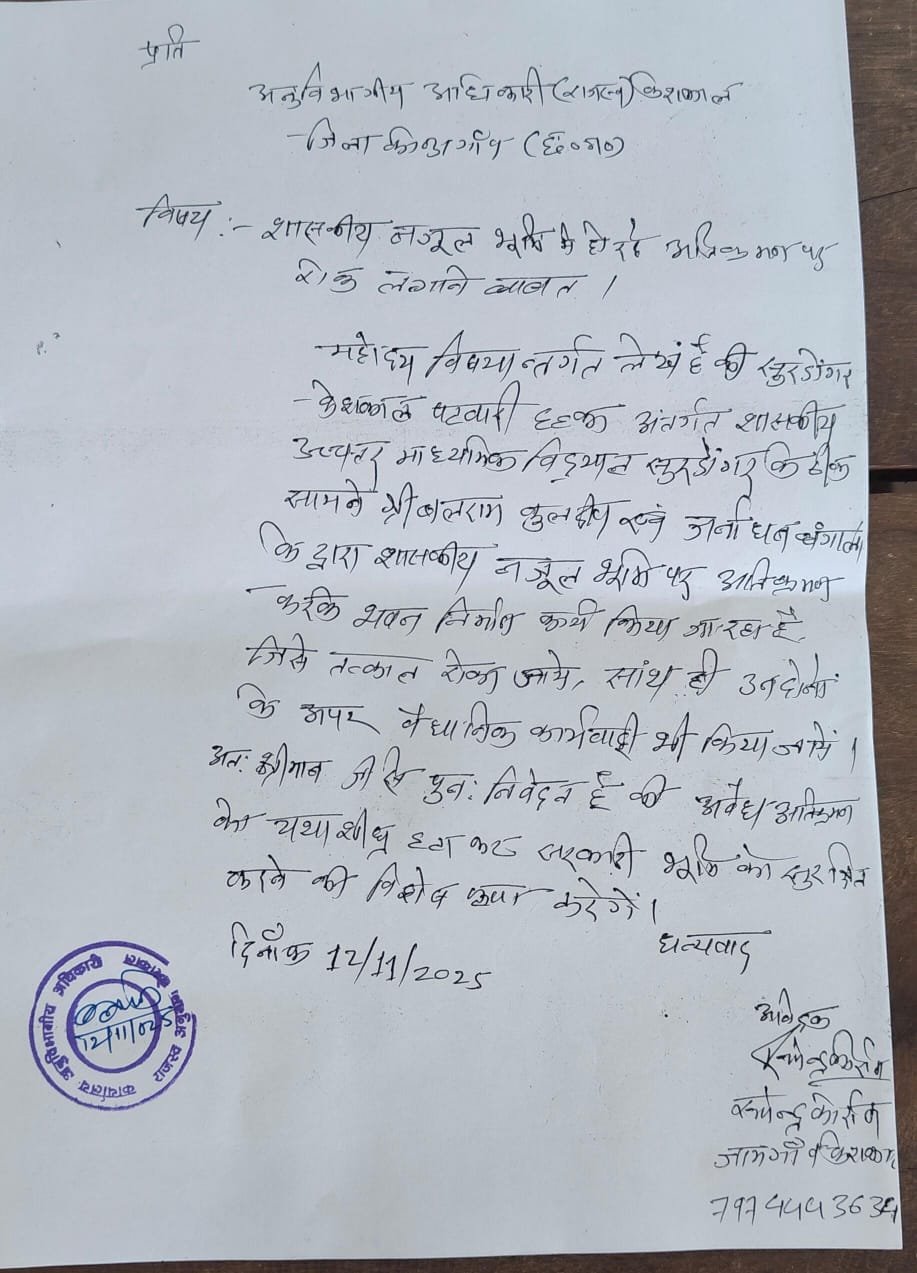 प्रति
अनुविभागीय अधिकारी (राजस्व) केशकाल
जिला कोण्डागाँव (छ०ग०)
विषय :- शासकीय नजूल भूमि में हो रहे अतिक्रमण पर
रोक लगाने बाबत ।
महोदय विषयान्तर्गत लेख है की सुरडोंगर
केशकाल पटवारी हल्का अंतर्गत शासकीय
उच्चतर माध्यमिक विद्यालय सुरडोंगर कि ठीक
सामने श्री बलराम कुलदीप एवं जर्नाधन बंगाली
कि द्वारा शासकीय नजूल भूमि पर अतिक्रमण
करके भवन निर्माण कार्य किया जा रहा है,
जिसे तत्काल रोका जाये, सांथ ही उन दोनों
के उपर वैधानिक कार्यवाही भी किया जायें ।
अतः श्रीमान जी से पुनः निवेदन है की अवैध अतिक्रमण
को यथाशीघ्र हटा कर सरकारी भूमि को सुरक्षित
करने की विशेष कृपा करेगें ।
दिनाँक 12/11/2025
धन्यवाद
कार्यालय अनुविभागीय अधिकारी राजस्व
12/11/025
आवेदक
रूपेन्द्र कोर्राम
जामगाँव केशकाल
7974443634